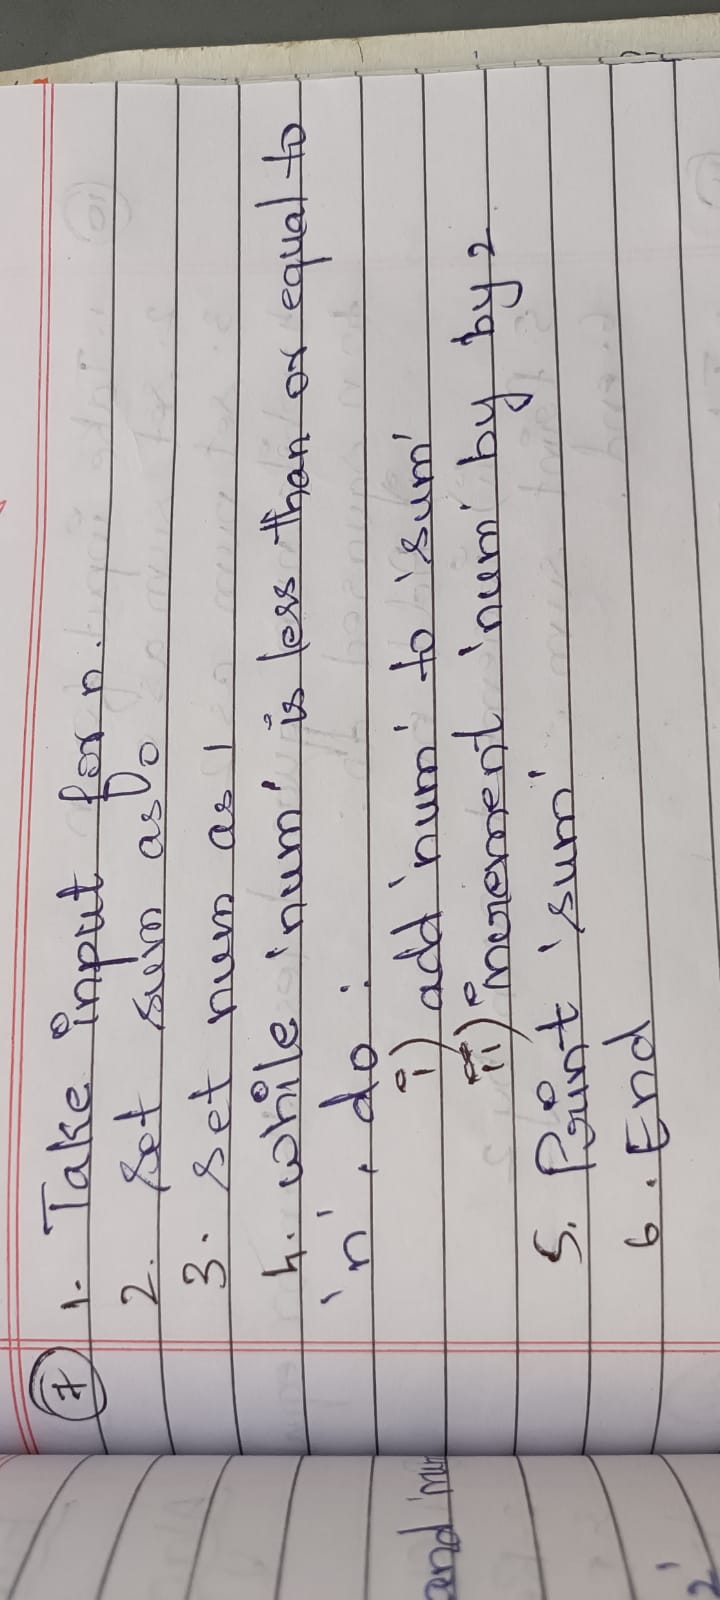 7
1. Take input for n.
2. Set sum as 0
3. Set num as 1
4. while 'num' is less than or equal to
'n', do :
i) add 'num' to 'sum'
ii) increment 'num' by by 2
5. Print 'sum'
6. End
and 'num
2'